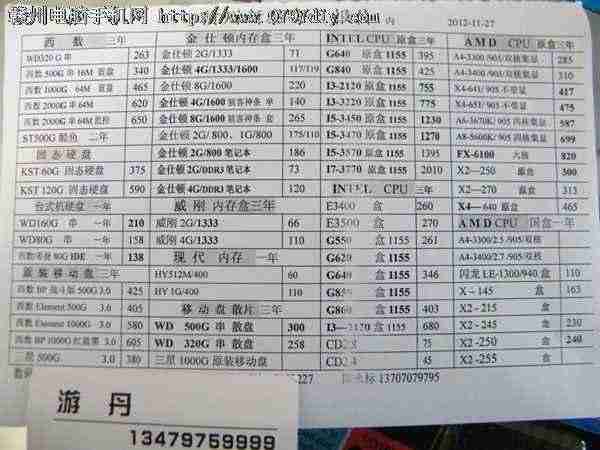 赣州电脑手机网 www.0797diy.com
内 2012-11-27
西 数 三年
WD320 G 串 263
西数 500G 串 16M 蓝盘 340
西数 1000G 串 64M 415
西数 2000G 串 64M 620
西数 2000G 串 64M 监控 650
ST500G 酷鱼 二年
固态硬盘
KST 60G 固态硬盘 375
KST 120G 固态硬盘 590
台式机硬盘 一年
WD160G 串 一年 210
WD80G 串 一年 158
西数希捷 80G IDE 一年 138
原装移动盘 三年
西数 BP 战斗版 500G 3.0 425
西数 Element 500G 3.0 405
西数 Element 1000G 3.0
西数 BP 1000G 红蓝黑 3.0 605
三星 500G 3.0 380
金仕顿内存盒三年
金仕顿 2G/1333 71
金仕顿 4G/1333/1600 117/119
金仕顿 8G/1600 220
金仕顿 4G/1600 骇客神条 单 140
金仕顿 8G/1600 骇客神条 套 265
金仕顿 2G/800、1G/800 175/110
金仕顿 2G/800 笔记本 186
金仕顿 2G/DDR3 笔记本 73
金仕顿 4G/DDR3 笔记本 120
威刚 内存盒三年
威刚 2G/1333 66
威刚 4G/1333 110
现代 内存 一年
HY512M/400 60
HY 1G/400 110
移动盘散片 三年
WD 500G 串 散盘 300
WD 320G 串 散盘 258
三星 1000G 原装移动盘
INTEL CPU 原盒三年
G640 原盒 1155 395
G840 原盒 1155 425
I3-2120 原盒 1155 755
I3-3220 原盒 1155 775
I5-3450 原盒 1155 1230
I5-3470 原盒 1155 1270
I5-3570 原盒 1155 1395
I7-3770 原盒 1155 2010
INTEL CPU 三年
E3400 盒 260
E3500 盒 270
G550 盒 1155 261
G620 盒 1155
G640 盒 1155 346
盒 1155
G860 盒 1155 403
I3-2120 盒 1155 680
盒 75
盒 45
AMD CPU 原盒三年
A4-3300 /905/双核盒 285
A4-3400 /905/双核盒 310
X4-641/ 905/不带显 417
X4-651/ 905/不带显 475
A6-3670K/ 905/四核盒 587
A8-5600K/ 905/四核盒 699
FX-6100 六核 820
X2—250 原盒 300
X2—270 原盒 315
X4— 640 原盒 465
AMD CPU 国盒一年
A4-3300/2.5 /905/双核
A4-3400/2.7 /905/双核
闪龙 LE-1300/940 盒 110
X－145 盒 163
X2－215 盒
X2－245 盒 230
X2 -250 盒 240
X2 -255 盒
13707079795
游 丹
13479759999